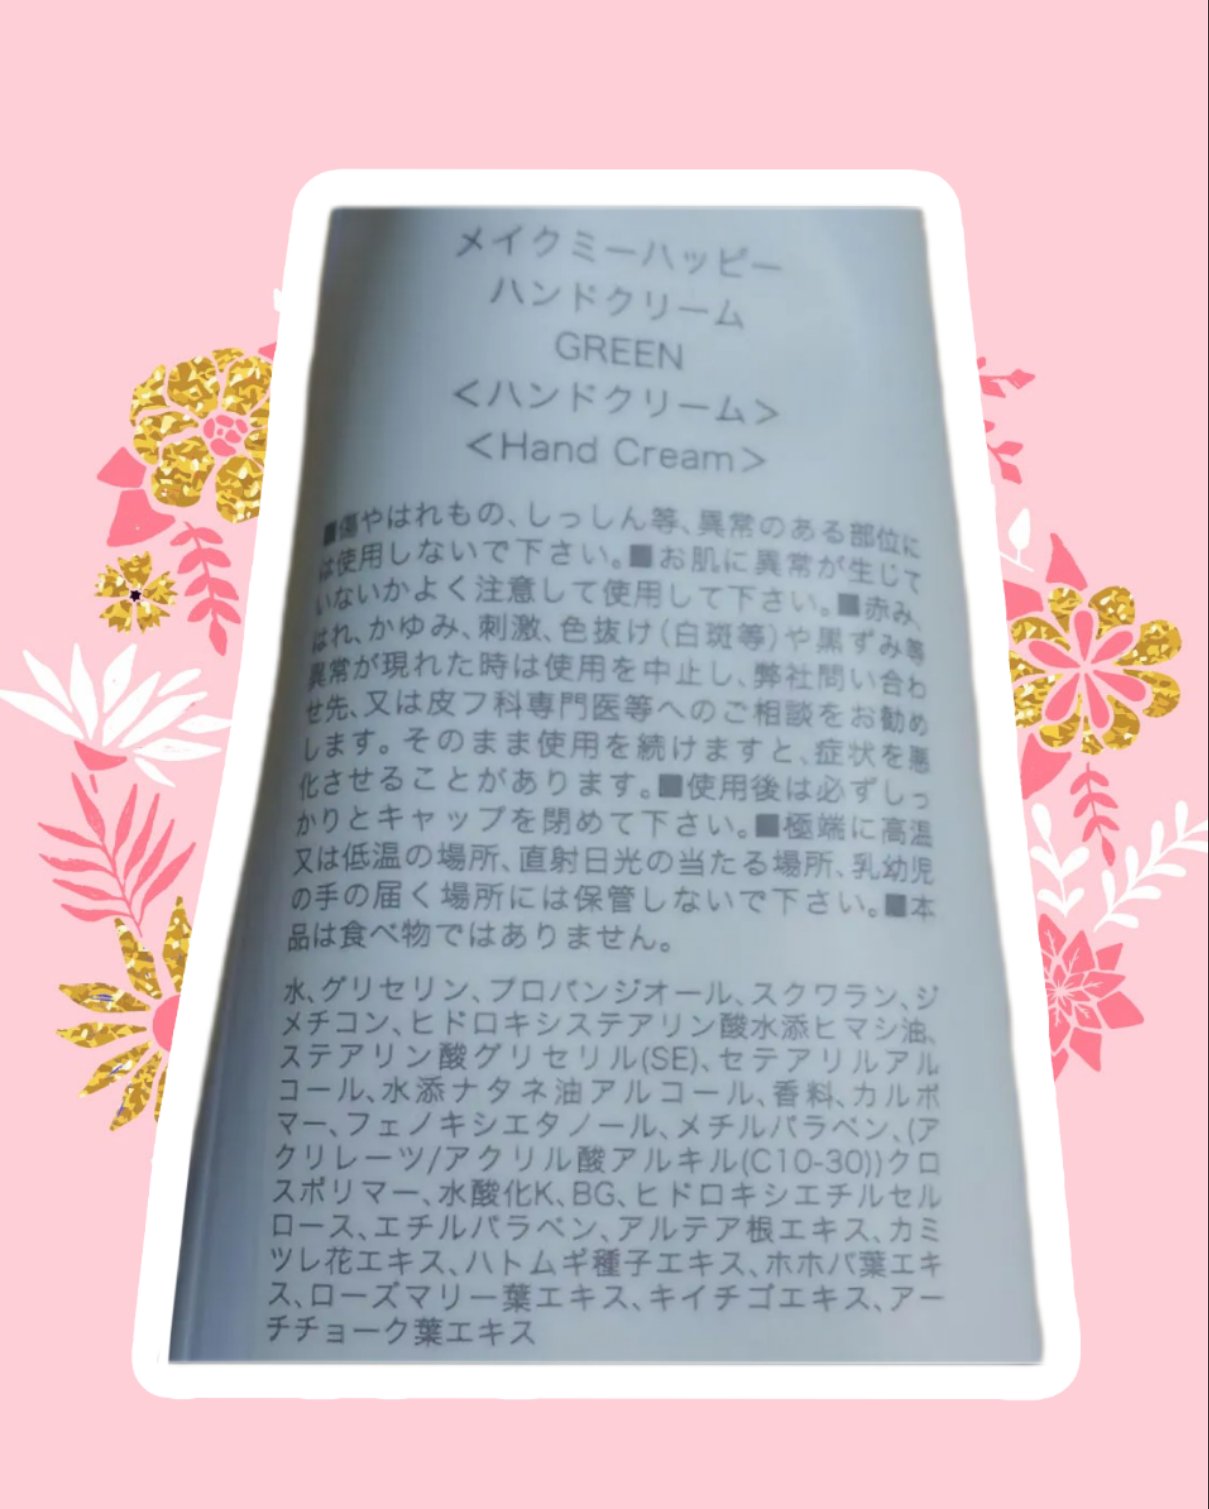 メイクミーハッピー
ハンドクリーム
GREEN
<ハンドクリーム>
<Hand Cream>
■傷やはれもの、しっしん等、異常のある部位に
は使用しないで下さい。■お肌に異常が生じて
いないかよく注意して使用して下さい。■赤み、
はれ、かゆみ、刺激、色抜け(白斑等)や黒ずみ等
異常が現れた時は使用を中止し、弊社問い合わ
せ先、又は皮フ科専門医等へのご相談をお勧め
します。そのまま使用を続けますと、症状を悪
化させることがあります。■使用後は必ずしっ
かりとキャップを閉めて下さい。■極端に高温
又は低温の場所、直射日光の当たる場所、乳幼児
の手の届く場所には保管しないで下さい。■本
品は食べ物ではありません。
水、グリセリン、プロパンジオール、スクワラン、ジ
メチコン、ヒドロキシステアリン酸水添ヒマシ油、
ステアリン酸グリセリル(SE)、セテアリルアル
コール、水添ナタネ油アルコール、香料、カルボ
マー、フェノキシエタノール、メチルパラベン、(ア
クリレーツ/アクリル酸アルキル(C10-30))クロ
スポリマー、水酸化K、BG、ヒドロキシエチルセル
ロース、エチルパラベン、アルテア根エキス、カミ
ツレ花エキス、ハトムギ種子エキス、ホホバ葉エキ
ス、ローズマリー葉エキス、キイチゴエキス、アー
チチョーク葉エキス